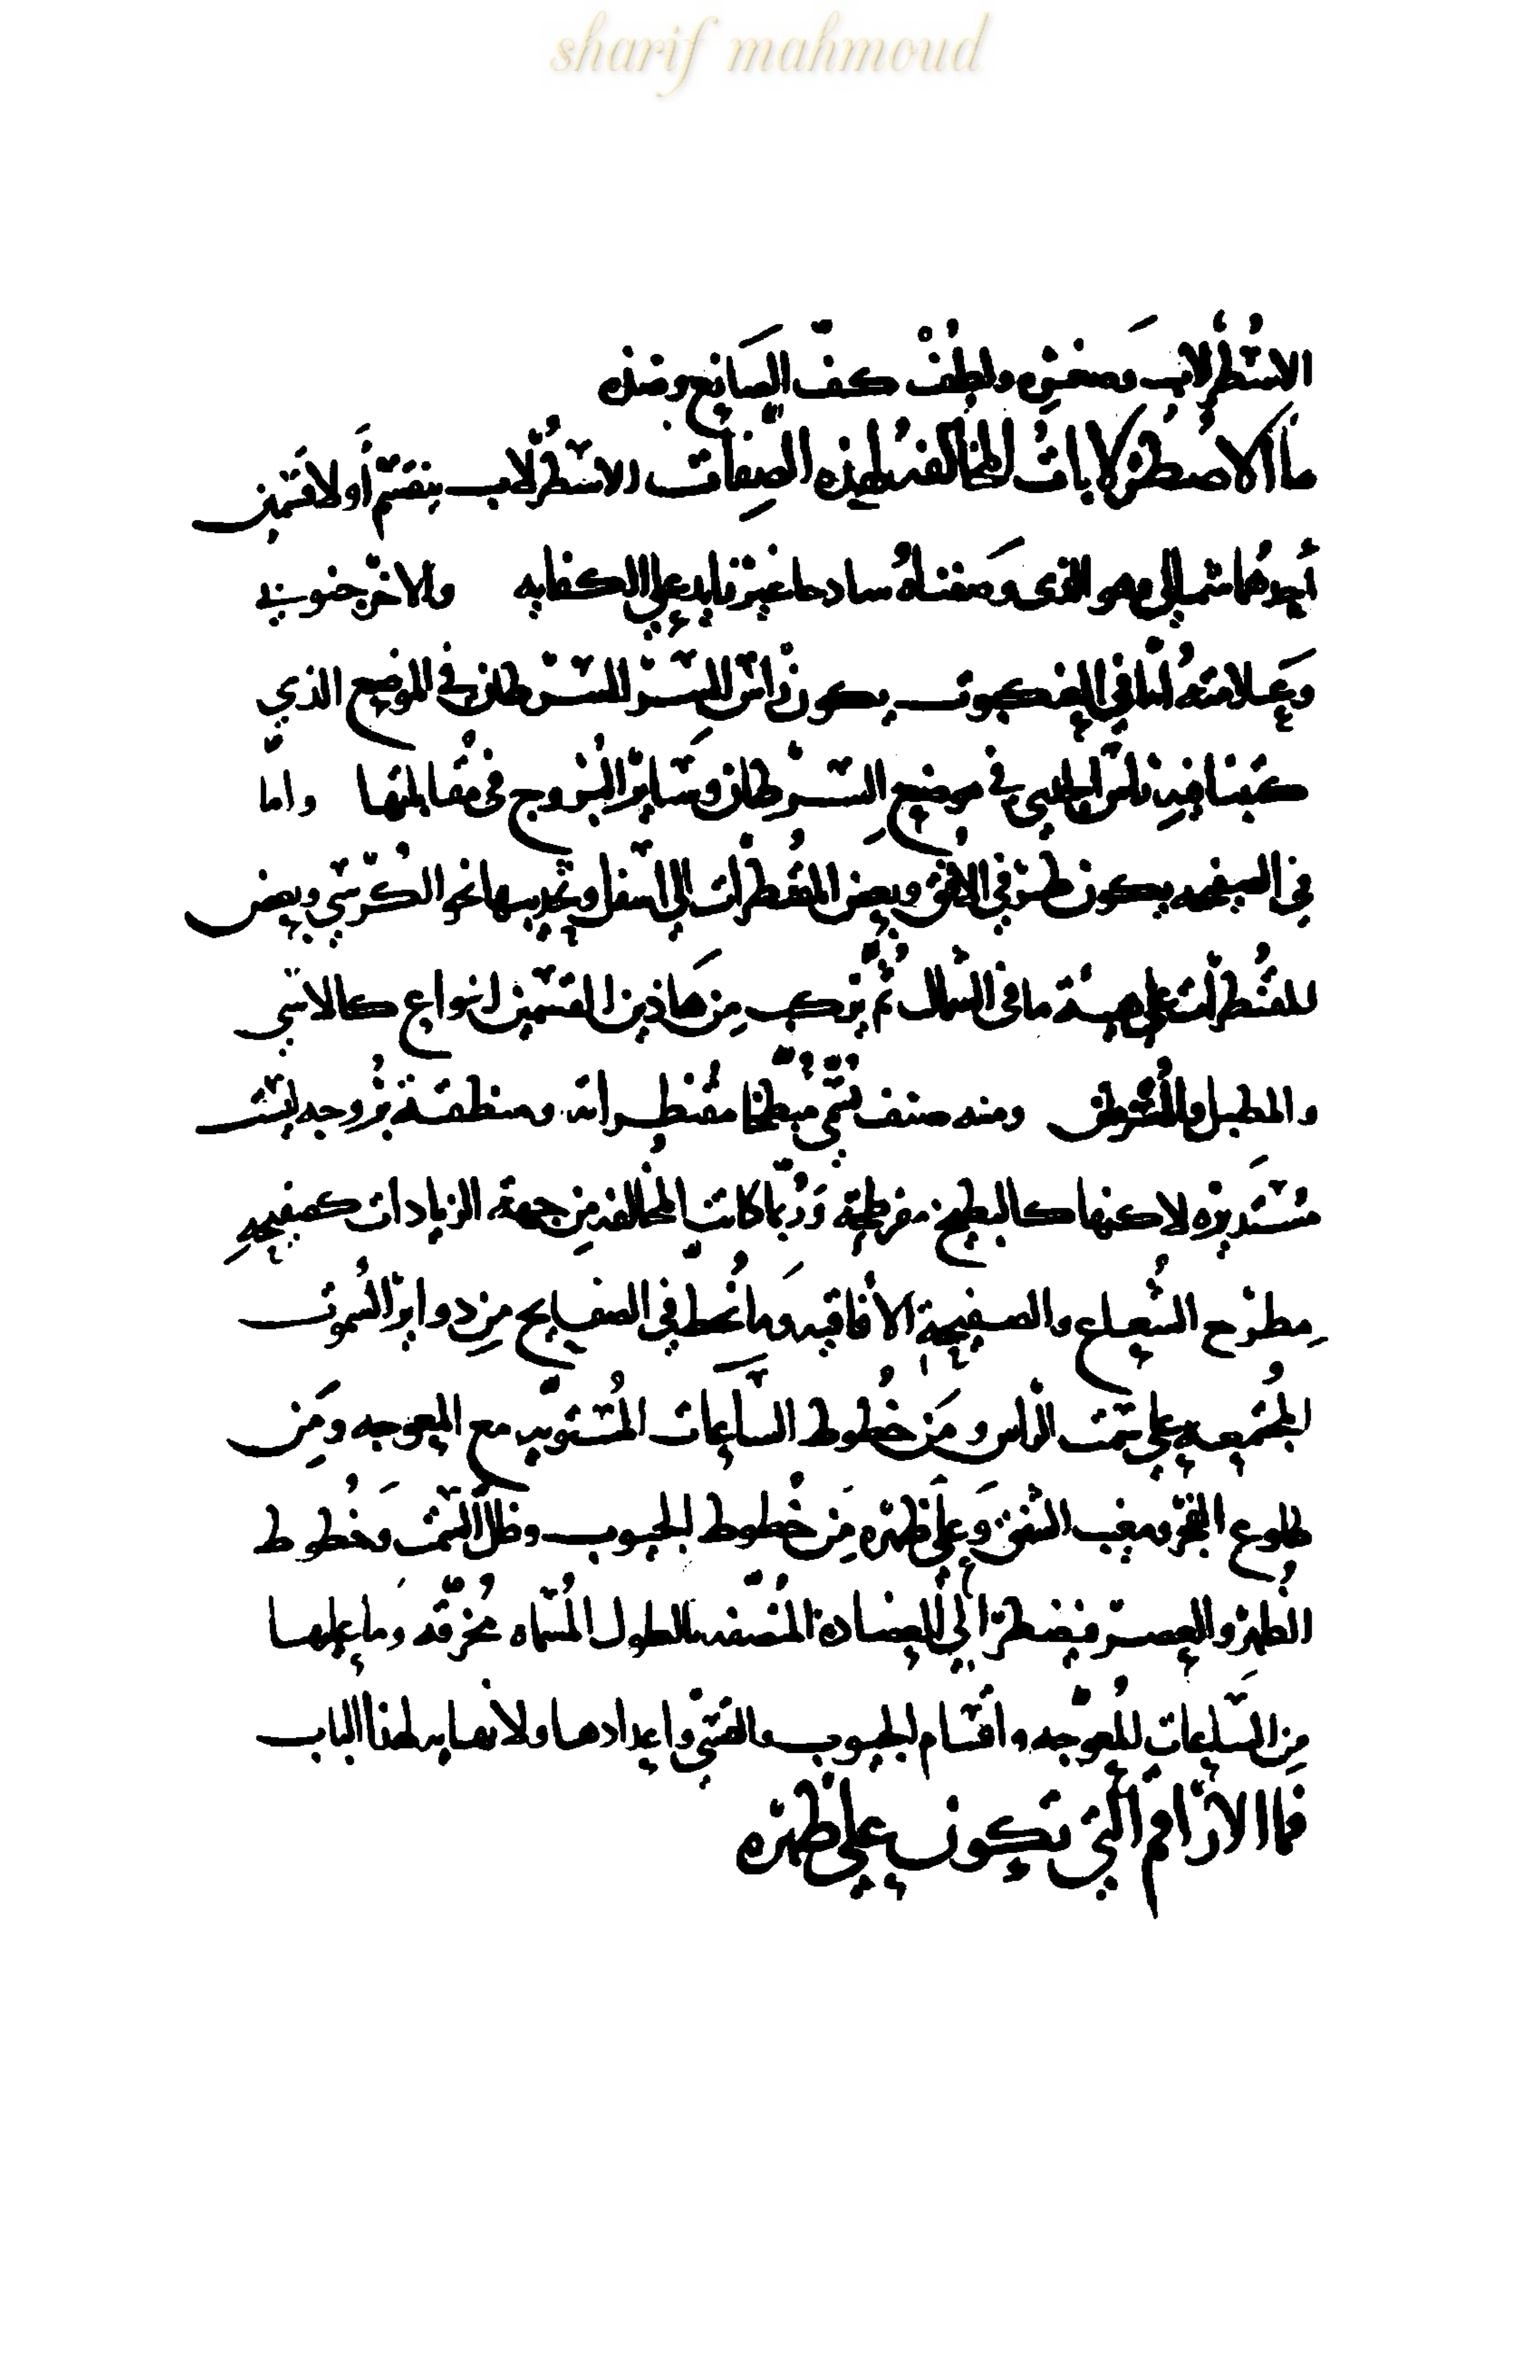 sharif mahmoud
الاسُطُرلابَ وصغره ولطُفْ كفّ الصَانع وضده
ما الاصُطُرلاباتُ المخالفه لهذه الصِّفات الاسْطُرلاب ينقسم أَولا قسَمين
أحدهُما شمالي وهو الذى وَصفناهُ سادحا غيرْ زايد علي الكفايه والاخرْ جنوبي
وَعلامته أمّا في العنكبوت يكون رَاس السرطان في الموضع الذي
كتبنا فيهِ راس الجدي في موضع السرْطان وسَايرْ البُروج في مقابلتها وامّا
في الصفيحه يكون طرْفي الافق وبعض المقُنطرات الي اسفل وتحديبها نحو الكُرّسي وبعض
المقُنطرات علي هيئة ما في الشمال ثمُ يرّكب مِن هَاذين القسَمين انواع كالاسّي
والمطبل والمُسرطن ومنه صنف يسُمّي مُبطّخا مقُنطراته ومنطقة برُوجه ليسَت
مُستَديرْه لاكنها كالبطيخ مفرطحة وَرُبّما كانت المخُالفه مِن جهة الزيادات كصفيحهِ
مِطرْح الشُعاع والصفيحة الافاقيه وَما نُخطّ في الصفايح مِن دوايرْ السُموت
المجتمعه علي سمَت الراس ومَن خُطوط السَّاعات المُستَويّه مع المعوجه ومَِن
طلوع الفجَر ومغيب الشفق وَعلَي ظهرْه مَِن خُطوط الجيوب وظلّ السمَت وَخُطوط
الظُهرْ والعصرْ فيضُطرّ الي العضادة المُنصّفه بالطول المُسّماه مُحرّفه وَما عليها
مِن السَّاعات المعُوجّه واقسَام الجيوب والقسَي واعدادها ولا نهايه لهذا الباب
فما الارَاقم التَي تكون علي ظهرْه